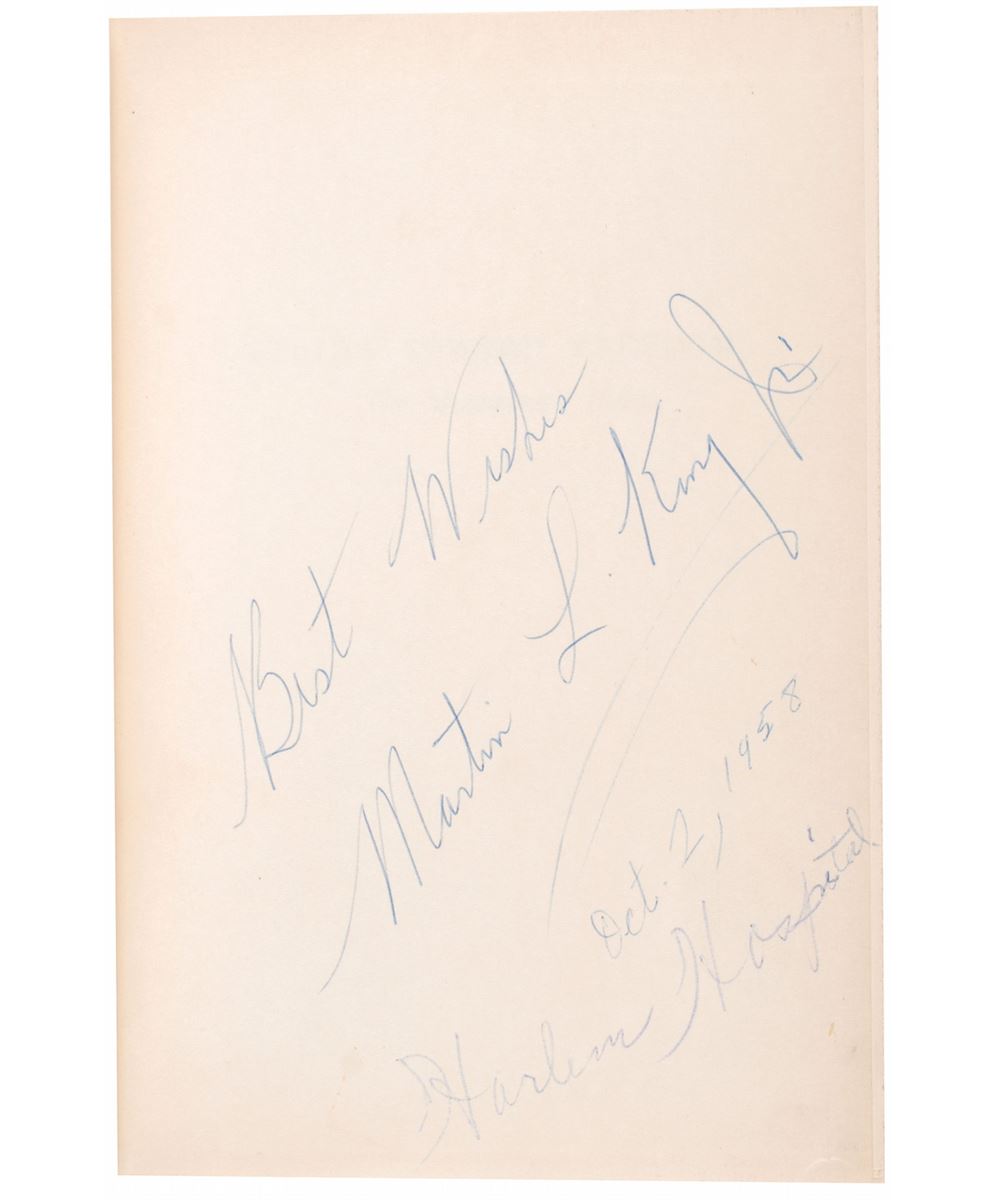 Best Wishes
Martin L. King Jr.
Oct. 2, 1958
Harlem Hospital